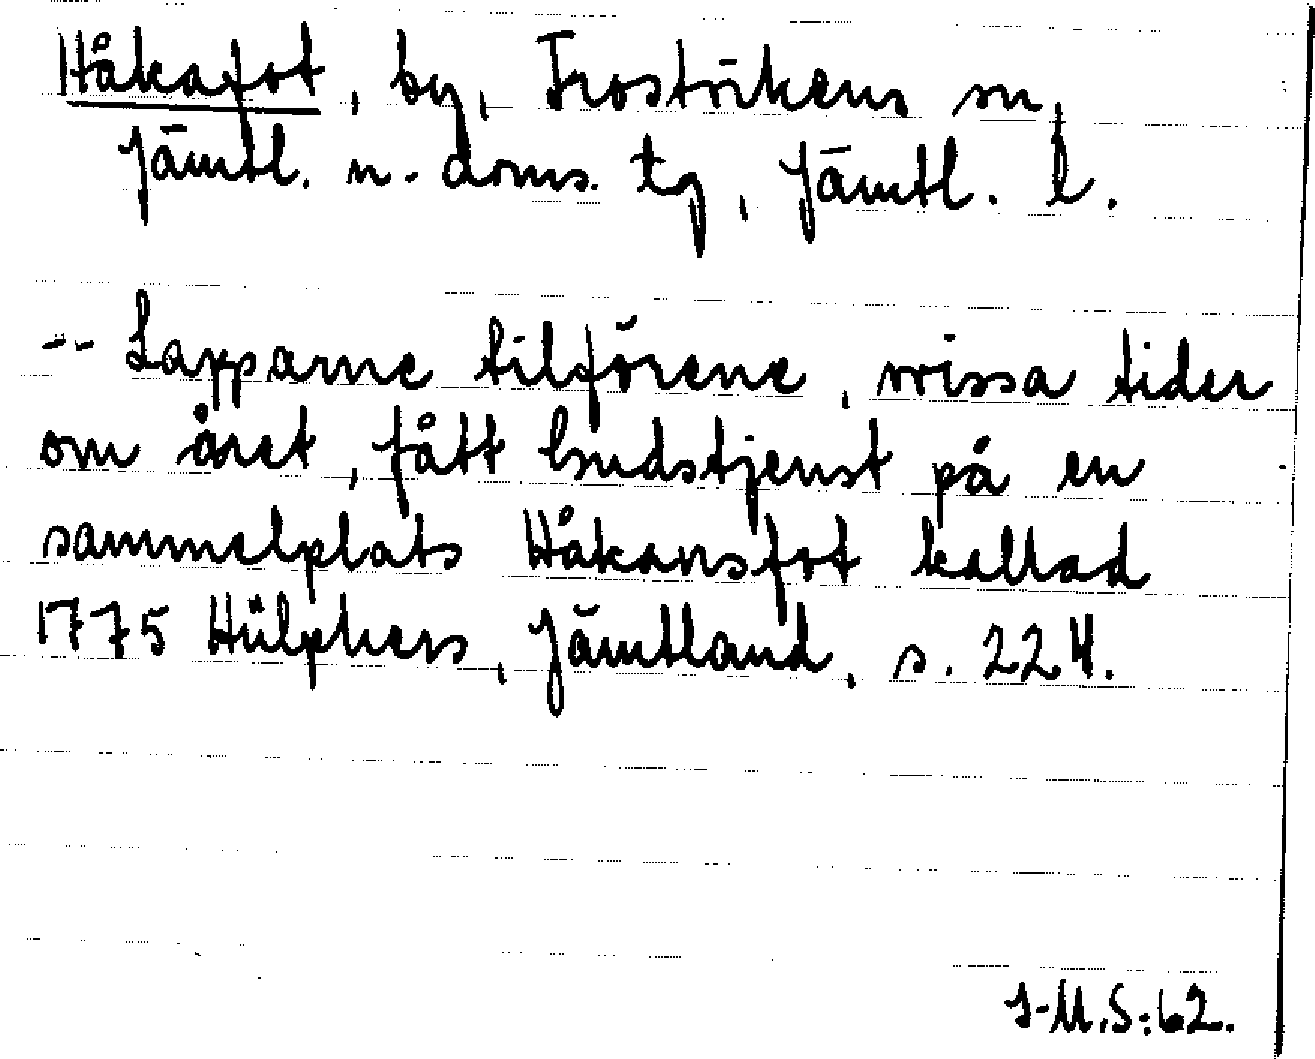 Håkafot, by, Frostvikens sn,
Jämtl. n. doms. tg, Jämtl. l.
-- Lapparne tilförene, wissa tider
om året, fått Gudstjenst på en
sammelplats Håkansfot kallad
1775 Hülphers, Jämtland, s. 224.
I-M.S:62.